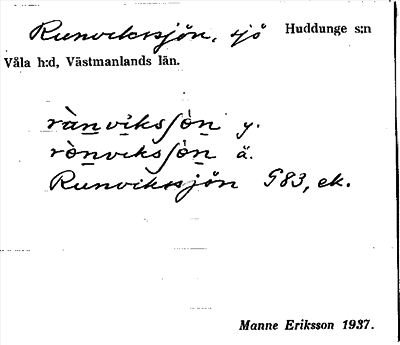 Runvikssjön, sjö Huddunge s:n
Våla h:d, Västmanlands län.
rànviksʃòn y.
rònviksʃòn ä.
Runvikssjön G83, ek.
Manne Eriksson 1937.